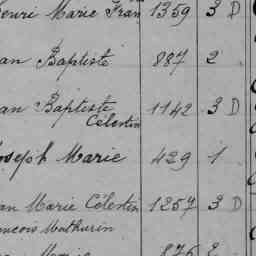 enri Marie Fran 1359 3 D
an Baptiste 887 2
an Baptiste 1142 3 D
Célestin
oseph Marie 429 1
an Marie Célestin 1257 3 D
ancois Mathurin
876 2